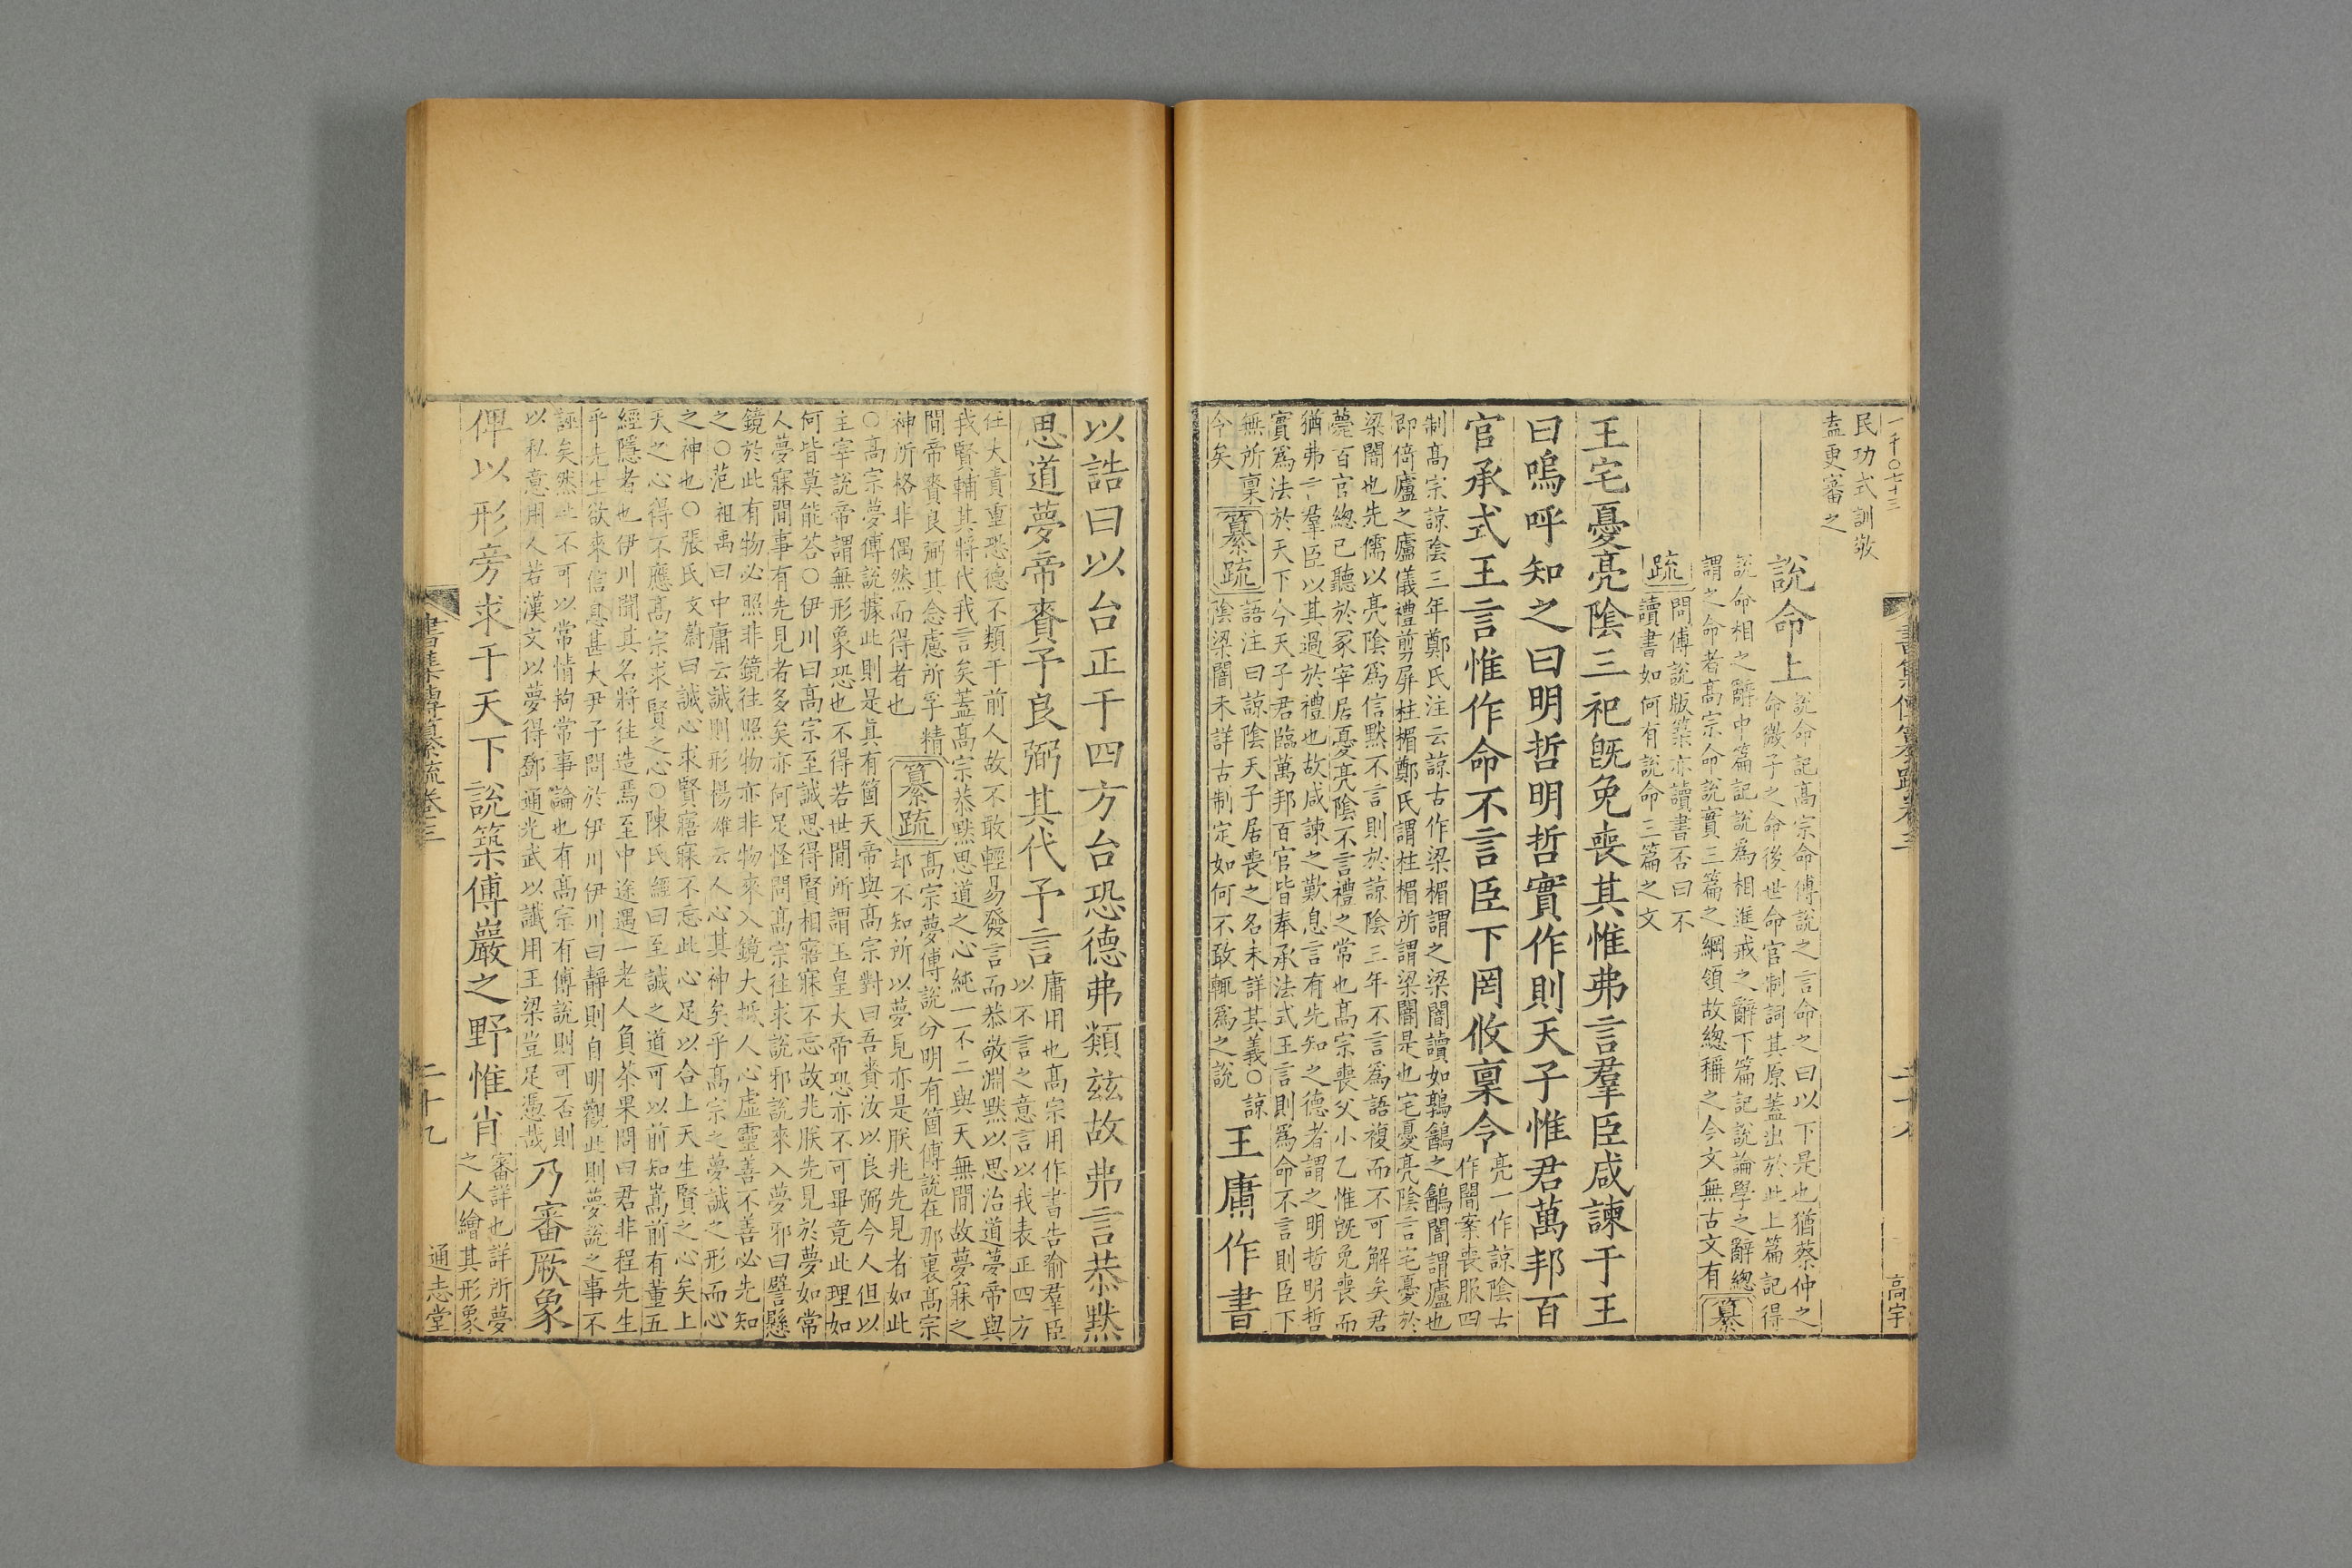 一千○七十三
書集傳纂疏卷三
二十八
高宇
民功式訓敬
盍更審之
說命上
說命記高宗命傅說之言命之曰以下是也猶蔡仲之
命微子之命後世命官制詞其原蓋出於此上篇記得
說命相之辭中篇記說爲相進戒之辭下篇記說論學之辭總
謂之命者高宗命說實三篇之綱領故總稱之今文無古文有
纂
疏
問傅說版築亦讀書否曰不
讀書如何有說命三篇之文
王宅憂亮陰三祀旣免喪其惟弗言羣臣咸諫于王
曰嗚呼知之曰明哲明哲實作則天子惟君萬邦百
官承式王言惟作命不言臣下罔攸稟令
亮一作諒陰古
作闇案喪服四
制高宗諒陰三年鄭氏注云諒古作梁楣謂之梁闇讀如鶉鷂之鷂闇謂廬也
即倚廬之廬儀禮剪屏柱楣鄭氏謂柱楣所謂梁闇是也宅憂亮陰言宅憂於
梁闇也先儒以亮陰爲信默不言則於諒陰三年不言爲語複而不可解矣君
薨百官總己聽於冢宰居憂亮陰不言禮之常也高宗喪父小乙惟旣免喪而
猶弗言羣臣以其過於禮也故咸諫之歎息言有先知之德者謂之明哲明哲
實爲法於天下今天子君臨萬邦百官皆奉承法式王言則爲命不言則臣下
無所稟
今矣
纂疏
語注曰諒陰天子居喪之名未詳其義○諒
陰梁闇未詳古制定如何不敢輒爲之說
王庸作書
以誥曰以台正于四方台恐德弗類茲故弗言恭默
思道夢帝賚予良弼其代予言
庸用也高宗用作書告喻羣臣
以不言之意言以我表正四方
任大責重恐德不類于前人故不敢輕易發言而恭敬淵默以思治道夢帝與
我賢輔其將代我言矣蓋高宗恭默思道之心純一不二與天無間故夢寐之
間帝賚良弼其念慮所孚精
神所格非偶然而得者也
纂疏
高宗夢傅說分明有箇傅說在那裏高宗
却不知所以夢見亦是朕兆先見者如此
○高宗夢傅說據此則是眞有箇天帝與高宗對曰吾賚汝以良弼今人但以
主宰說帝謂無形象恐也不得若世間所謂玉皇大帝恐亦不可畢竟此理如
何皆莫能荅○伊川曰高宗至誠思得賢相寤寐不忘故兆朕先見於夢如常
人夢寐間事有先見者多矣亦何足怪問高宗往求說邪說來入夢邪曰譬懸
鏡於此有物必照非鏡往照物亦非物來入鏡大抵人心虛靈善不善必先知
之○范祖禹曰中庸云誠則形楊雄云人心其神矣乎高宗之夢誠之形而心
之神也○張氏文蔚曰誠心求賢寤寐不忘此心足以合上天生賢之心矣上
天之心得不應高宗求賢之心○陳氏經曰至誠之道可以前知嵩前有董五
經隱者也伊川聞其名將往造焉至中途遇一老人負茶果問曰君非程先生
乎先生欲來信息甚大尹子問於伊川伊川曰靜則自明觀此則夢說之事不
誣矣然此不可以常情拘常事論也有高宗有傅說則可否則
以私意用人若漢文以夢得鄧通光武以讖用王梁豈足憑哉
乃審厥象
俾以形旁求于天下說築傅巖之野惟肖
審詳也詳所夢
之人繪其形象
書集傳纂疏卷三
二十九
通志堂